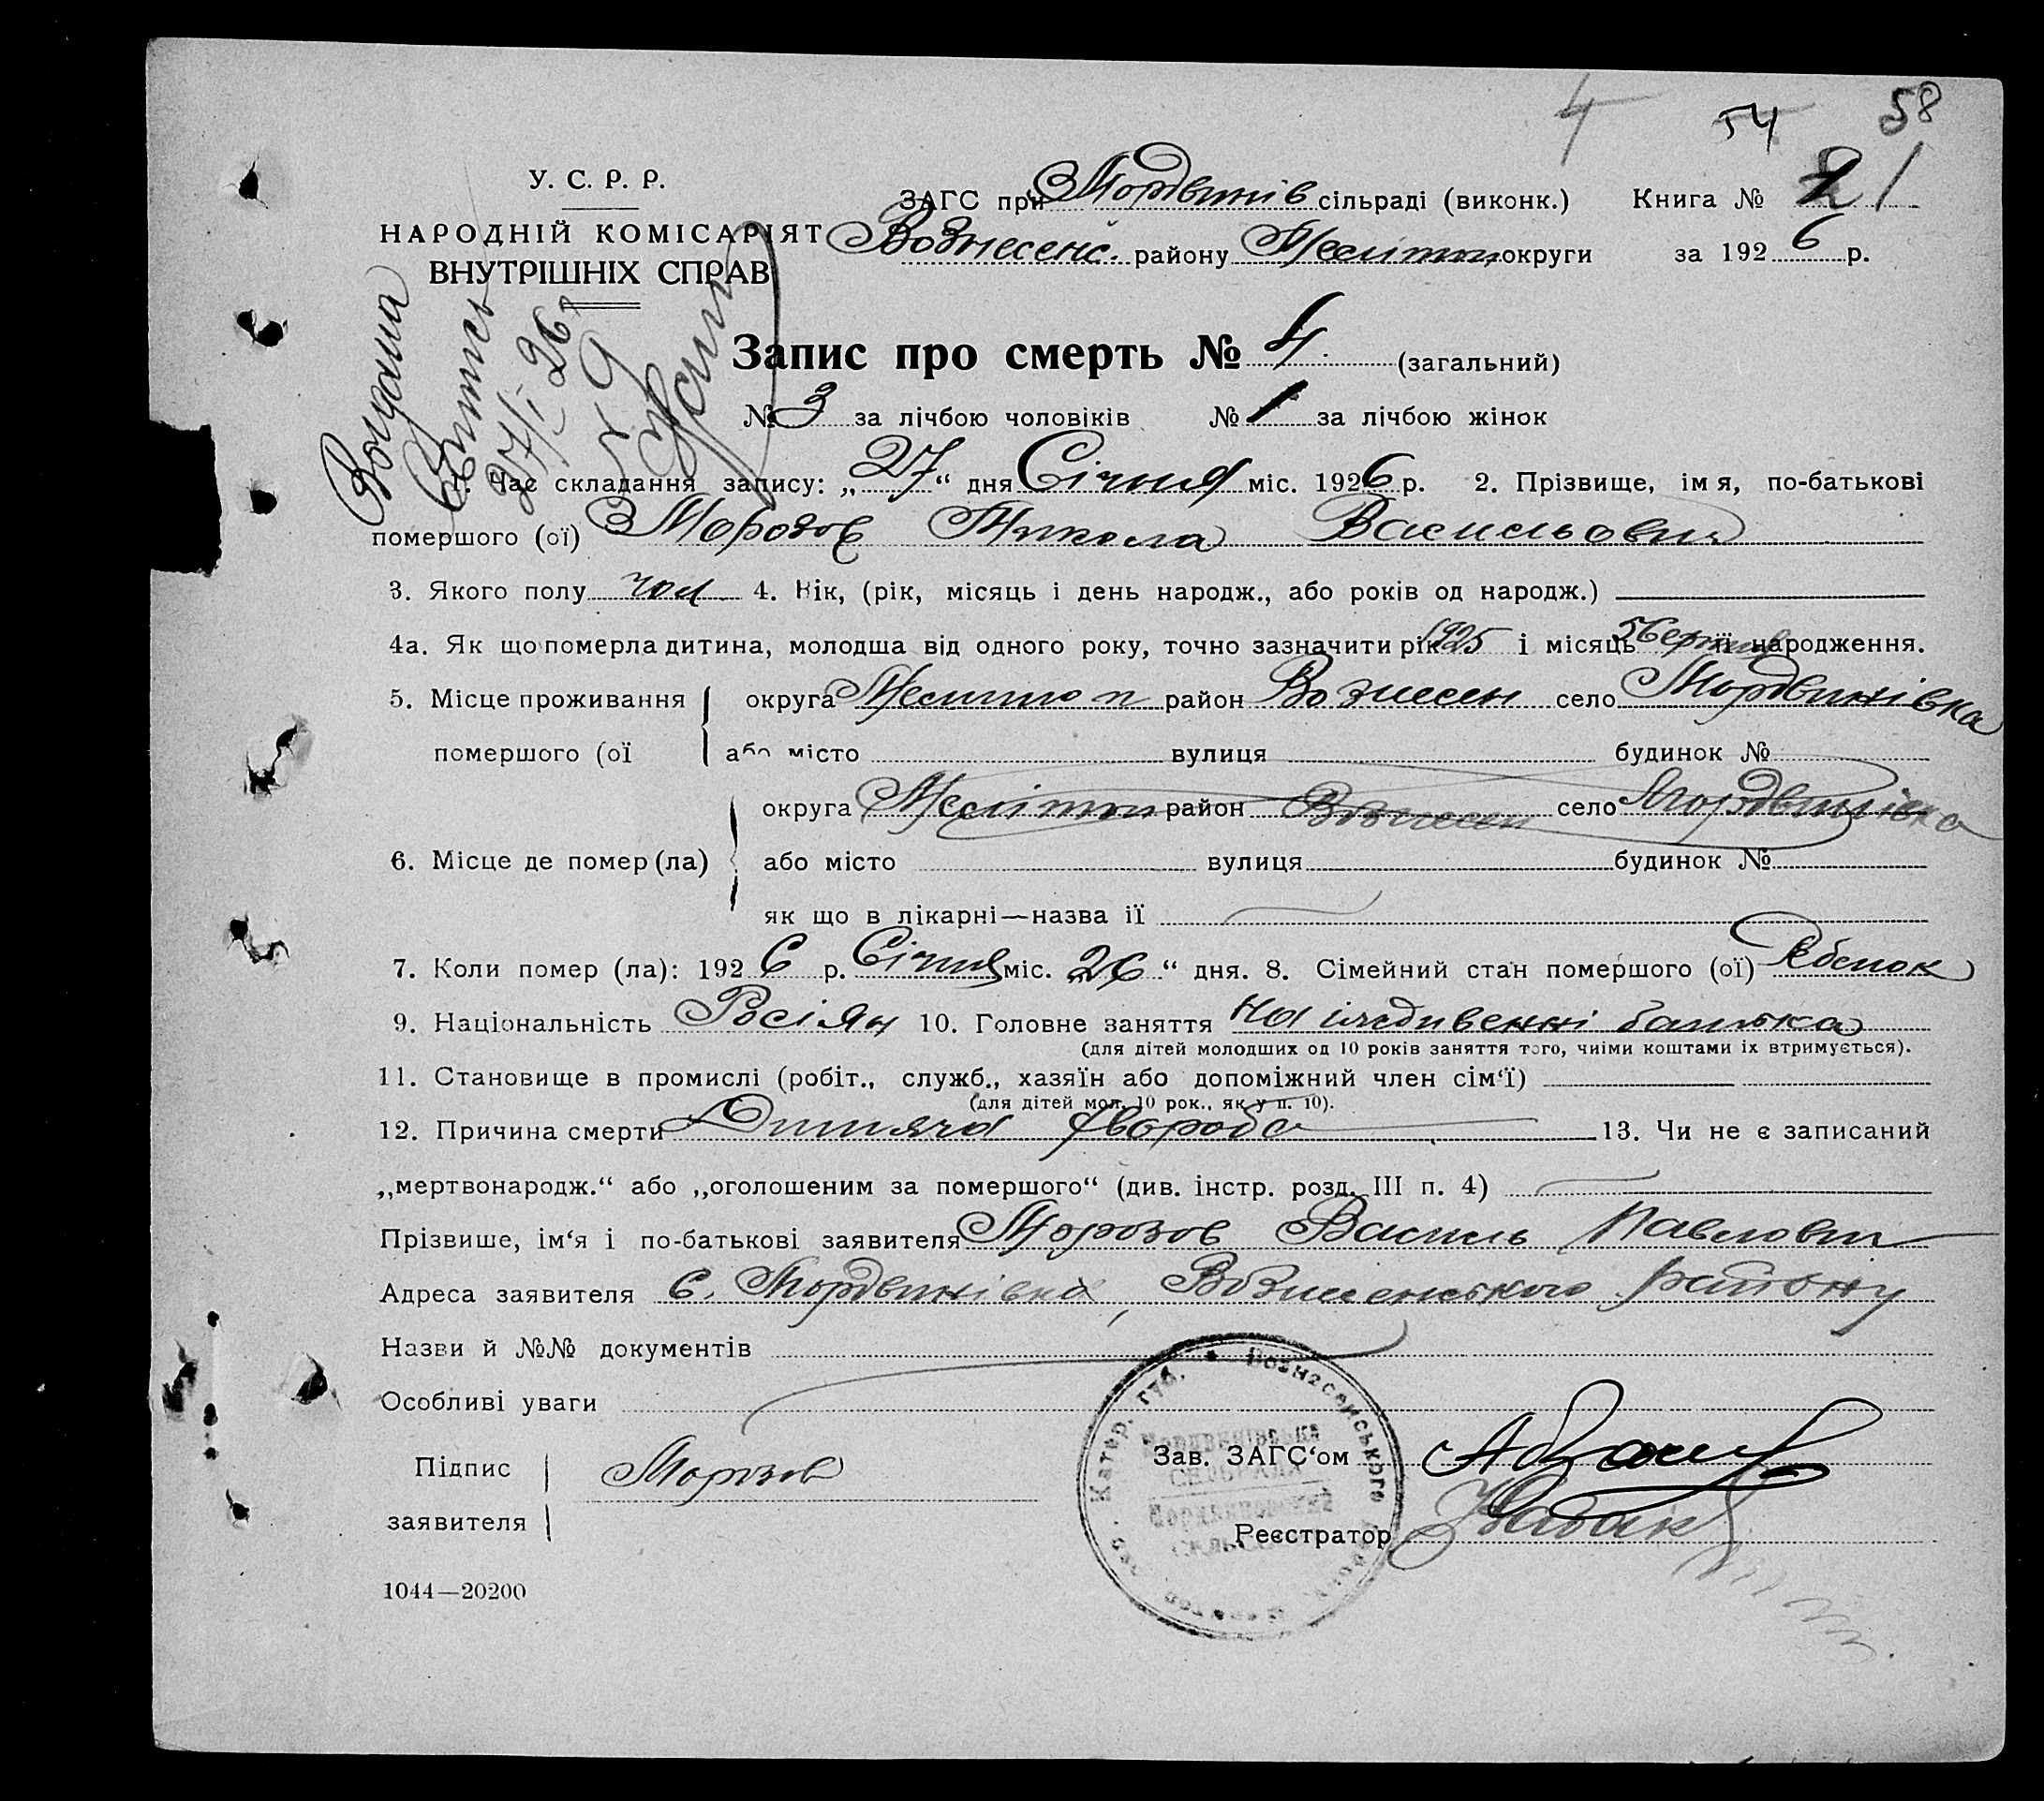 4 54 58
У. С. Р. Р.
НАРОДНІЙ КОМІСАРІЯТ
ВНУТРІШНІХ СПРАВ
ЗАГС при Мордвинів сільраді (виконк.) Книга № 21
Вознесенс. району Мелітоп округи за 1926 р.
Видана
Витись
27/I 26
№ 9
Запис про смерть № 4. (загальний)
№ 3 за лічбою чоловіків № 1 за лічбою жінок
1. Час складання запису: „27“ дня Січня міс. 1926 р. 2. Прізвище, імя, по-батькові
помершого (ої) Морозов Микола Васильович
3. Якого полу чол 4. Вік, (рік, місяць і день народж., або років од народж.)
4а. Як що померла дитина, молодша від одного року, точно зазначити рік 1925 і місяць її народження.
5. Місце проживання округа Мелитоп район Вознесен село Мордвинівка
помершого (ої або місто вулиця будинок №
округа Мелітоп район Вознесен село Мордвинівка
6. Місце де помер (ла) або місто вулиця будинок №
як що в лікарні—назва ії
7. Коли помер (ла): 1926 р. Січня міс. 26“ дня. 8. Сімейний стан помершого (ої) Ребенок
9. Національність Росіян 10. Головне заняття На іждивенні батька
(для дітей молодших од 10 років заняття того, чиіми коштами іх втримується).
11. Становище в промислі (робіт., служб., хазяїн або допоміжний член сім‘ї)
(для дітей мол. 10 рок., як у п. 10).
12. Причина смерти Дитяча хвороба 13. Чи не є записаний
„мертвонародж.“ або „оголошеним за помершого“ (див. інстр. розд. III п. 4)
Прізвише, ім‘я і по-батькові заявителя Морозов Василь Павлович
Адреса заявителя с. Мордвинівка, Вознесенського району
Назви й №№ документів
Особливі уваги
Підпис заявителя Морозов
Зав. ЗАГС‘ом
Реєстратор
Катер. губ. Вознесенського
Мордвинівська
СІЛЬРАДА
1044—20200